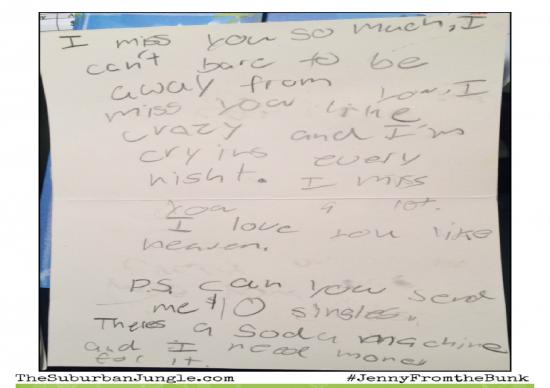 I miss you so much, I
can't bare to be
away from you, I
miss you like
crazy and I'm
crying every
night. I miss
you a lot.
I love you like
heaven.
P.S. can you send
me $10 singles.
Theres a soda machine
and I need money
for it.
TheSuburbanJungle.com #JennyFromtheBunk